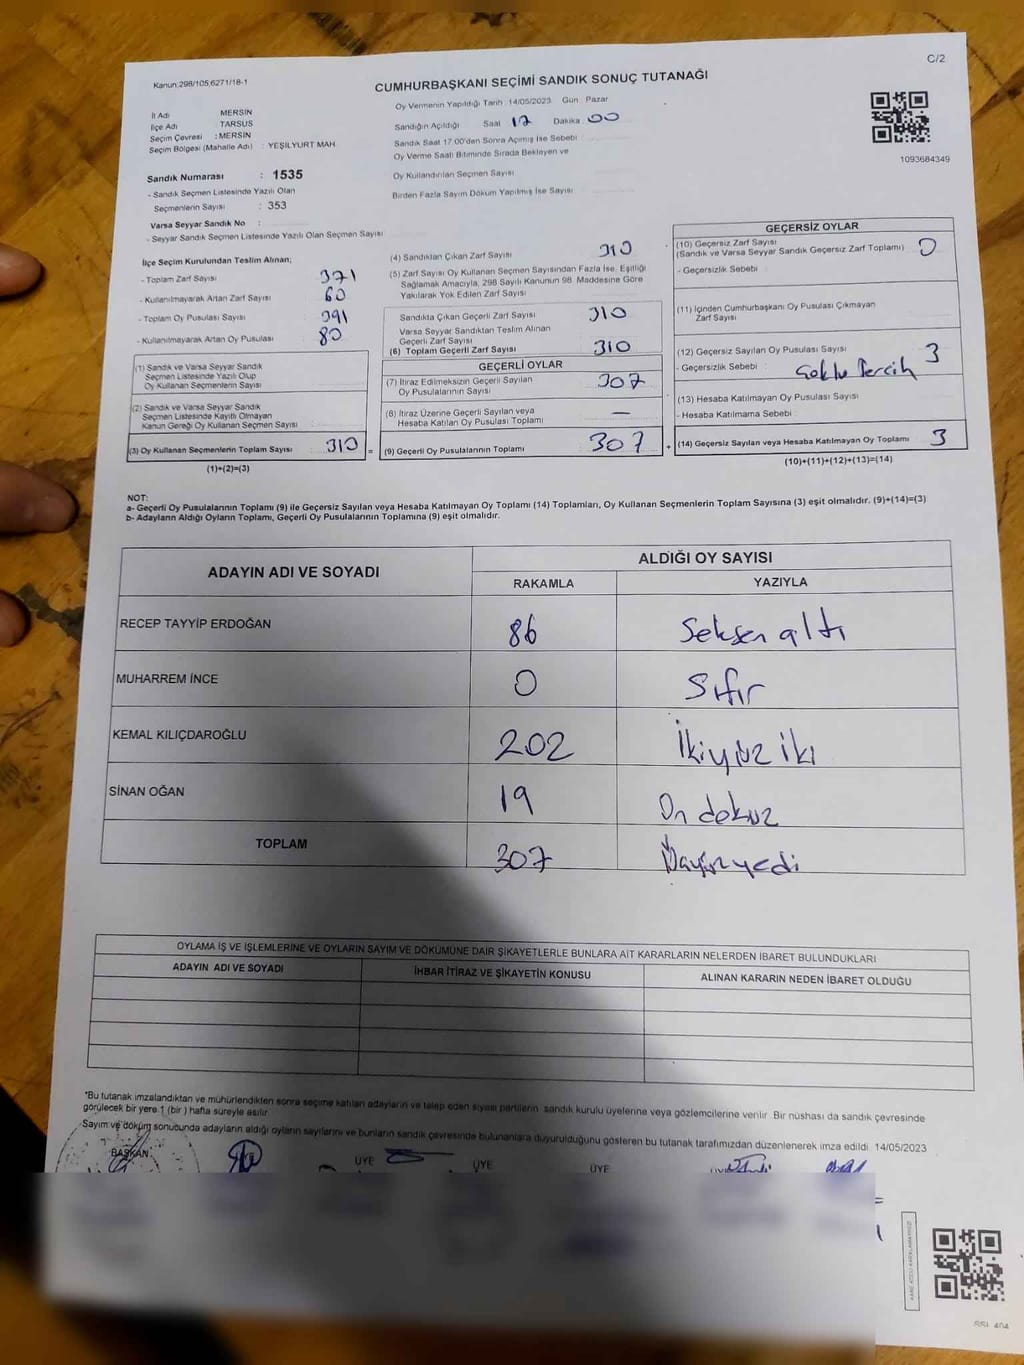 C/2
Kanun:298/105,6271/18-1
CUMHURBAŞKANI SEÇİMİ SANDIK SONUÇ TUTANAĞI
Oy Vermenin Yapıldığı Tarih : 14/05/2023 Gün : Pazar
İl Adı : MERSİN
İlçe Adı : TARSUS
Seçim Çevresi : MERSİN
Seçim Bölgesi (Mahalle Adı) : YEŞİLYURT MAH.
Sandığın Açıldığı Saat 17 Dakika 00
Sandık Saat 17:00'den Sonra Açılmış İse Sebebi :
Oy Verme Saati Bitiminde Sırada Bekleyen ve
Oy Kullandırılan Seçmen Sayısı
Birden Fazla Sayım Döküm Yapılmış İse Sayısı
1093684349
Sandık Numarası : 1535
- Sandık Seçmen Listesinde Yazılı Olan
Seçmenlerin Sayısı : 353
Varsa Seyyar Sandık No :
- Seyyar Sandık Seçmen Listesinde Yazılı Olan Seçmen Sayısı
İlçe Seçim Kurulundan Teslim Alınan;
- Toplam Zarf Sayısı 371
- Kullanılmayarak Artan Zarf Sayısı 60
- Toplam Oy Pusulası Sayısı 391
- Kullanılmayarak Artan Oy Pusulası 80
(1) Sandık ve Varsa Seyyar Sandık
Seçmen Listesinde Yazılı Olup
Oy Kullanan Seçmenlerin Sayısı
(2) Sandık ve Varsa Seyyar Sandık
Seçmen Listesinde Kayıtlı Olmayan
Kanun Gereği Oy Kullanan Seçmen Sayısı
(3) Oy Kullanan Seçmenlerin Toplam Sayısı 310 =
(1)+(2)=(3)
(4) Sandıktan Çıkan Zarf Sayısı 310
(5) Zarf Sayısı Oy Kullanan Seçmen Sayısından Fazla İse, Eşitliği
Sağlamak Amacıyla, 298 Sayılı Kanunun 98. Maddesine Göre
Yakılarak Yok Edilen Zarf Sayısı
Sandıkta Çıkan Geçerli Zarf Sayısı 310
Varsa Seyyar Sandıktan Teslim Alınan
Geçerli Zarf Sayısı
(6) Toplam Geçerli Zarf Sayısı 310
GEÇERLİ OYLAR
(7) İtiraz Edilmeksizin Geçerli Sayılan
Oy Pusulalarının Sayısı 307
(8) İtiraz Üzerine Geçerli Sayılan veya
Hesaba Katılan Oy Pusulası Toplamı —
(9) Geçerli Oy Pusulalarının Toplamı 307 +
GEÇERSİZ OYLAR
(10) Geçersiz Zarf Sayısı
(Sandık ve Varsa Seyyar Sandık Geçersiz Zarf Toplamı) 0
- Geçersizlik Sebebi :
(11) İçinden Cumhurbaşkanı Oy Pusulası Çıkmayan
Zarf Sayısı
(12) Geçersiz Sayılan Oy Pusulası Sayısı 3
- Geçersizlik Sebebi : Çoklu Tercih
(13) Hesaba Katılmayan Oy Pusulası Sayısı
- Hesaba Katılmama Sebebi :
(14) Geçersiz Sayılan veya Hesaba Katılmayan Oy Toplamı 3
(10)+(11)+(12)+(13)=(14)
NOT:
a- Geçerli Oy Pusulalarının Toplamı (9) ile Geçersiz Sayılan veya Hesaba Katılmayan Oy Toplamı (14) Toplamları, Oy Kullanan Seçmenlerin Toplam Sayısına (3) eşit olmalıdır. (9)+(14)=(3)
b- Adayların Aldığı Oyların Toplamı, Geçerli Oy Pusulalarının Toplamına (9) eşit olmalıdır.
ADAYIN ADI VE SOYADI
ALDIĞI OY SAYISI
RAKAMLA YAZIYLA
RECEP TAYYİP ERDOĞAN 86 Seksen altı
MUHARREM İNCE 0 Sıfır
KEMAL KILIÇDAROĞLU 202 İkiyüz iki
SİNAN OĞAN 19 On dokuz
TOPLAM 307 Üçyüzyedi
OYLAMA İŞ VE İŞLEMLERİNE VE OYLARIN SAYIM VE DÖKÜMÜNE DAİR ŞİKAYETLERLE BUNLARA AİT KARARLARIN NELERDEN İBARET BULUNDUKLARI
ADAYIN ADI VE SOYADI İHBAR İTİRAZ VE ŞİKAYETİN KONUSU ALINAN KARARIN NEDEN İBARET OLDUĞU
*Bu tutanak imzalandıktan ve mühürlendikten sonra seçime katılan adayların ve talep eden siyasi partilerin sandık kurulu üyelerine veya gözlemcilerine verilir. Bir nüshası da sandık çevresinde
görülecek bir yere 1 (bir) hafta süreyle asılır.
Sayım ve döküm sonucunda adayların aldığı oyların sayılarını ve bunların sandık çevresinde bulunanlara duyurulduğunu gösteren bu tutanak tarafımızdan düzenlenerek imza edildi. 14/05/2023
BAŞKAN ÜYE ÜYE ÜYE